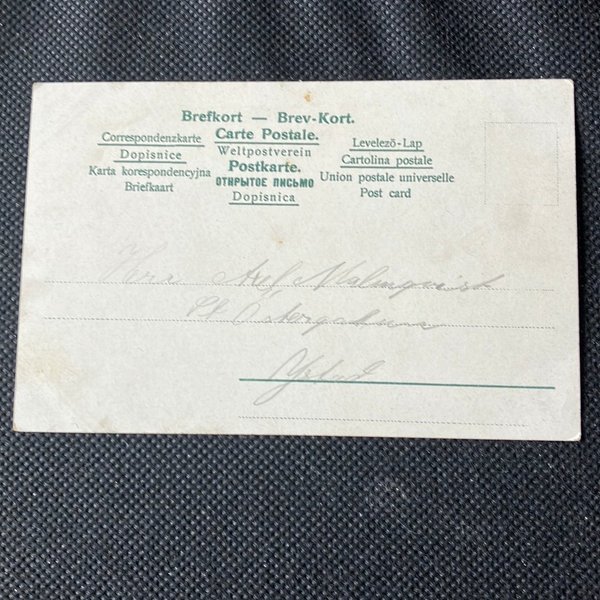 Brefkort — Brev-Kort.
Correspondenzkarte Carte Postale. Levelező-Lap
Dopisnice Weltpostverein Cartolina postale
Karta korespondencyjna Postkarte. Union postale universelle
Briefkaart ОТКРЫТОЕ ПИСЬМО Post card
Dopisnica
Herr Axel Malmqvist
St Östergatan
Ystad